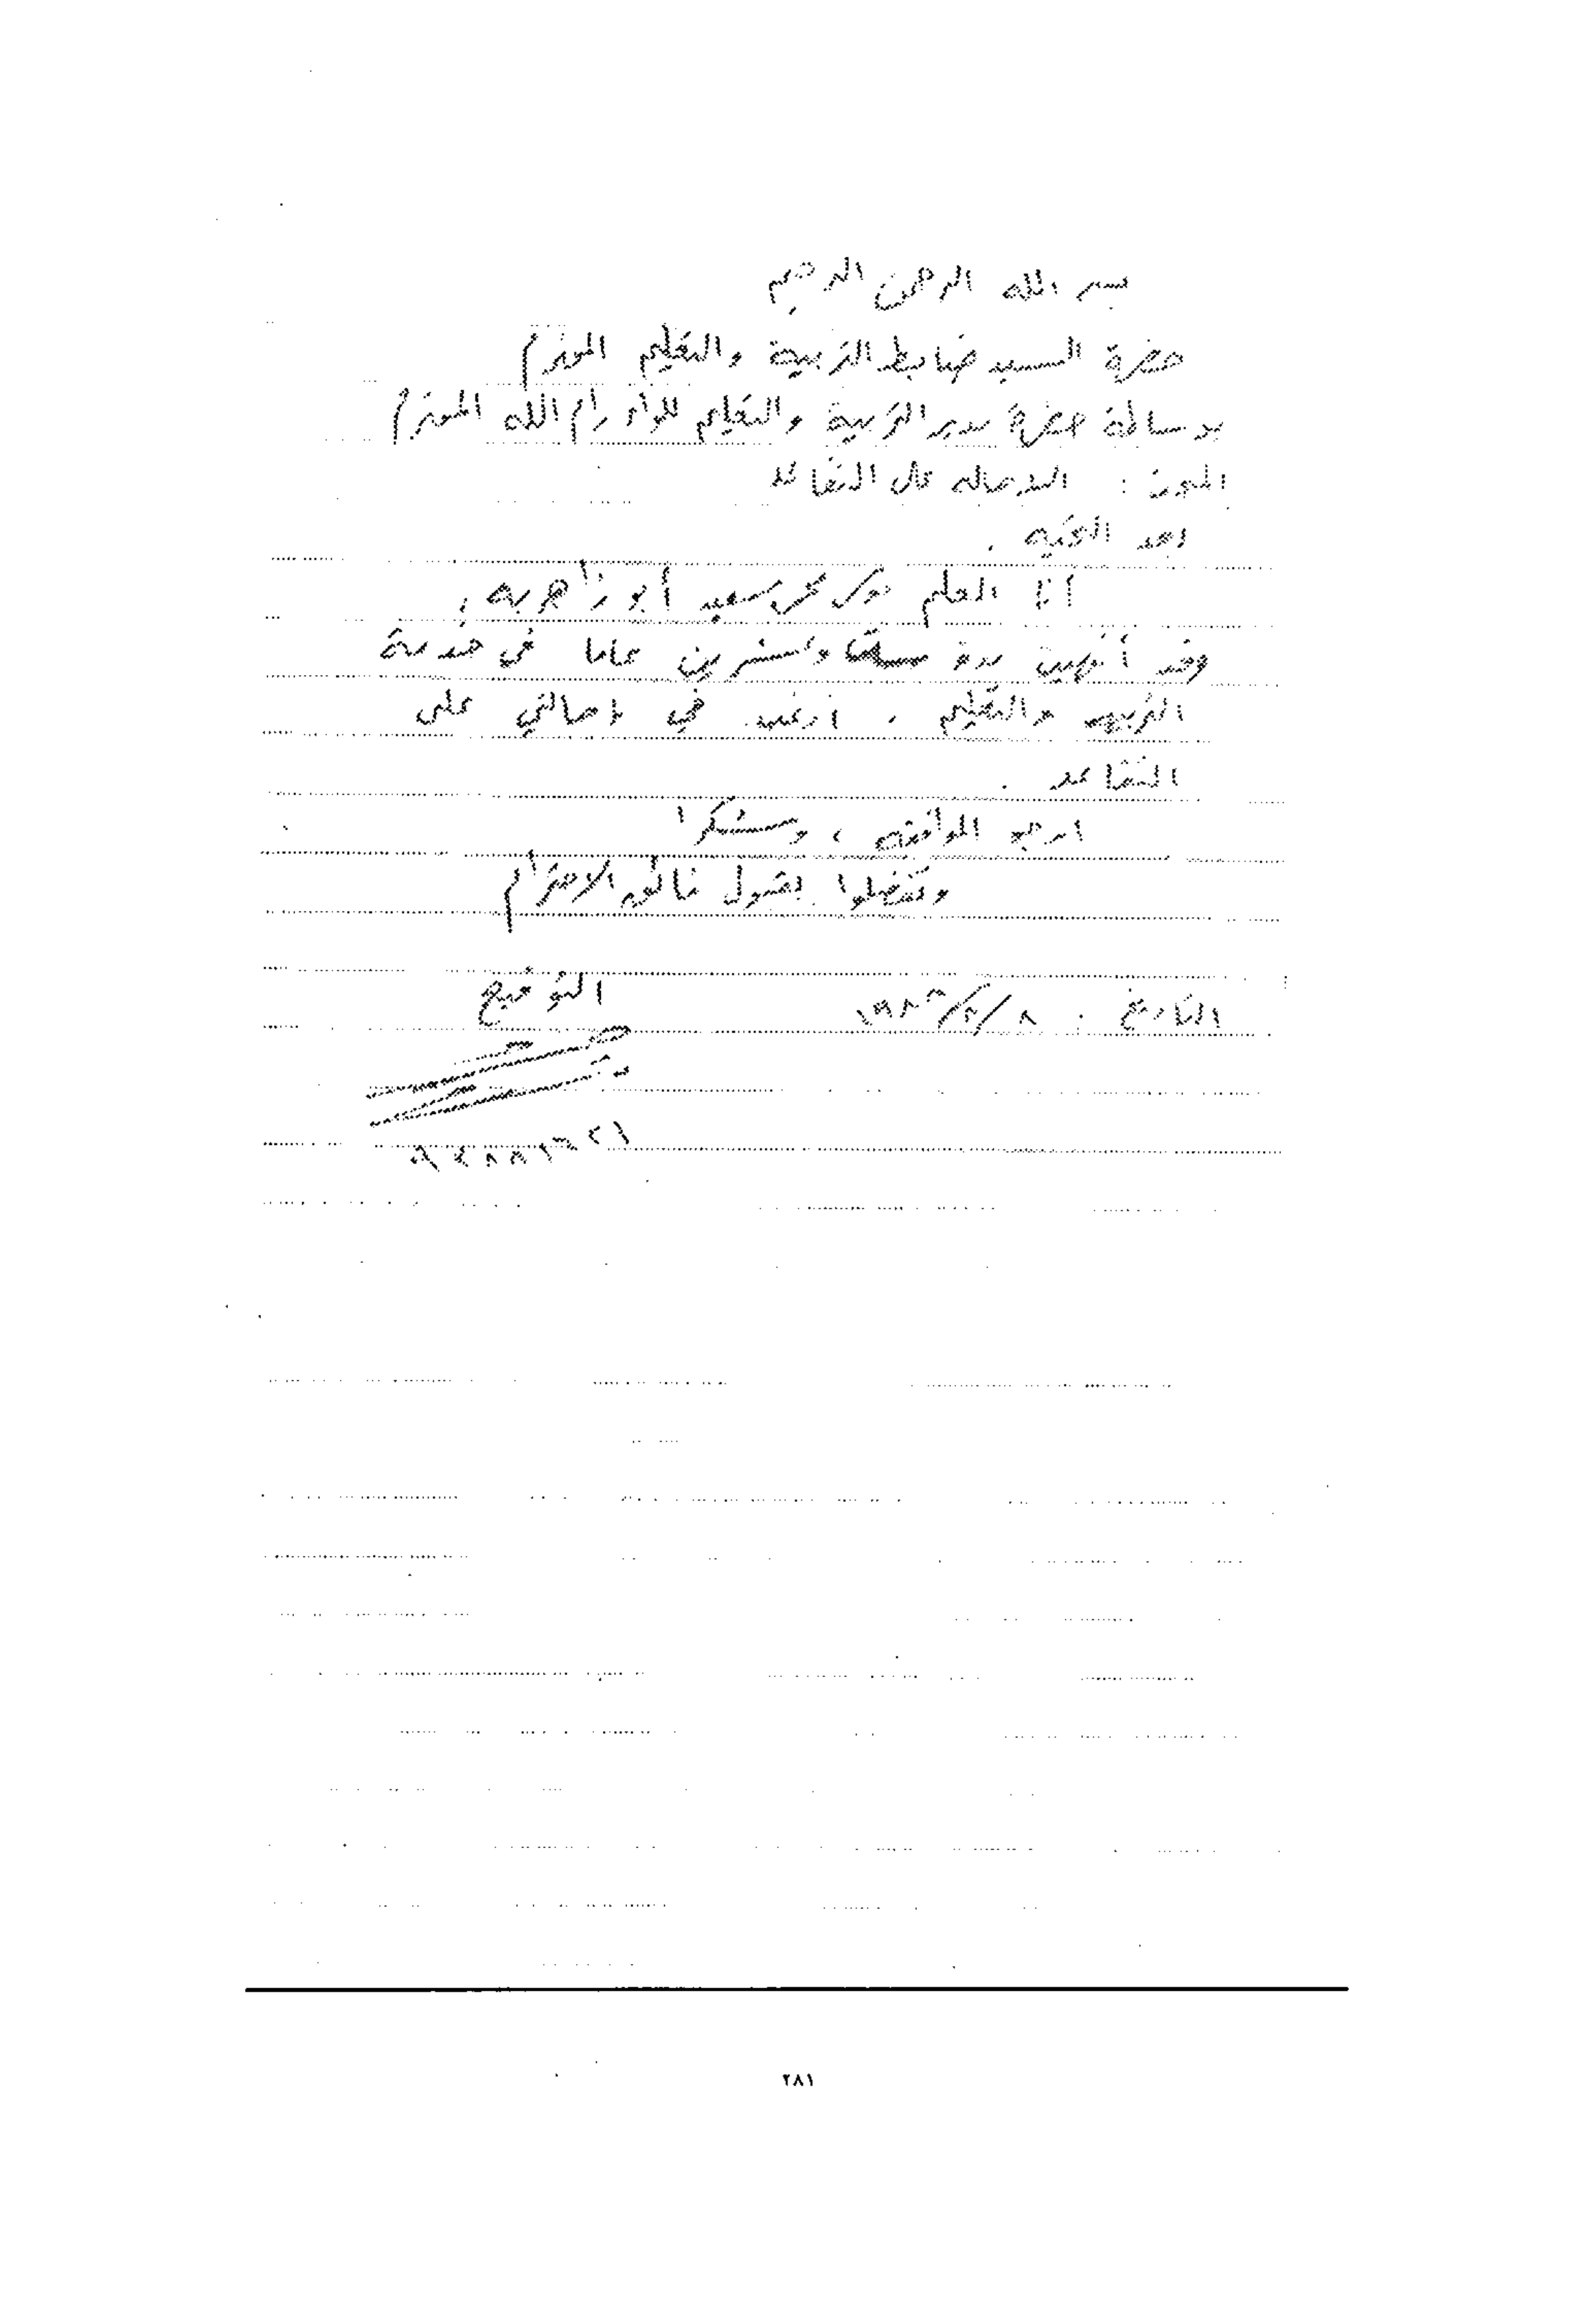 بسم الله الرحمن الرحيم
حضرة السيد ضابط التربية والتعليم المحترم
بوساطة حضرة مدير التربية والتعليم للواء رام الله المحترم
الموضوع : الاحالة على التقاعد
بعد التحية .
أنا المعلم سعيد أبو زاهرية ،
وقد أنهيت مدة وعشرين عاما في خدمة
التربية والتعليم . ارغب في إحالتي على
التقاعد .
ارجو الموافقة ، وشكرا
وتفضلوا بقبول فائق الاحترام
التوقيع
التاريخ :
٢٨١